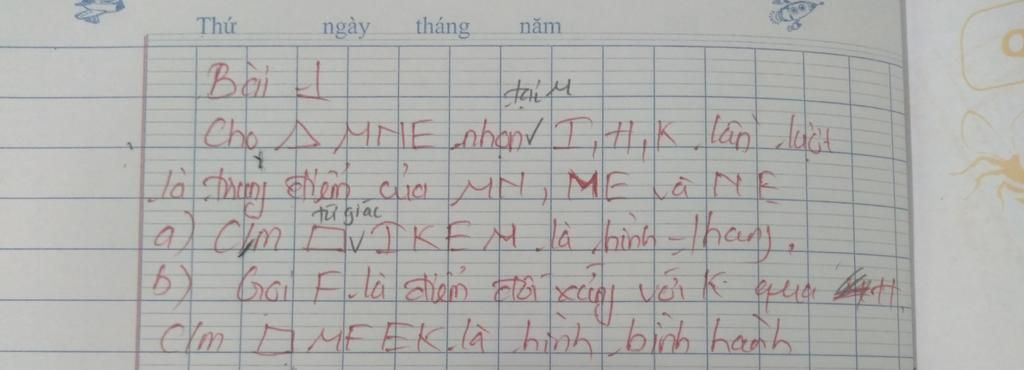 Thứ ngày tháng năm
Bài 1
tại M
Cho △ MNE nhọn√ I, H, K lần lượt
là trung điểm của MN, ME và NE
tứ giác
a) C/m □√IKEM là hình thang.
b) Gọi F là điểm đối xứng với K qua H
C/m □ MFEK là hình bình hành